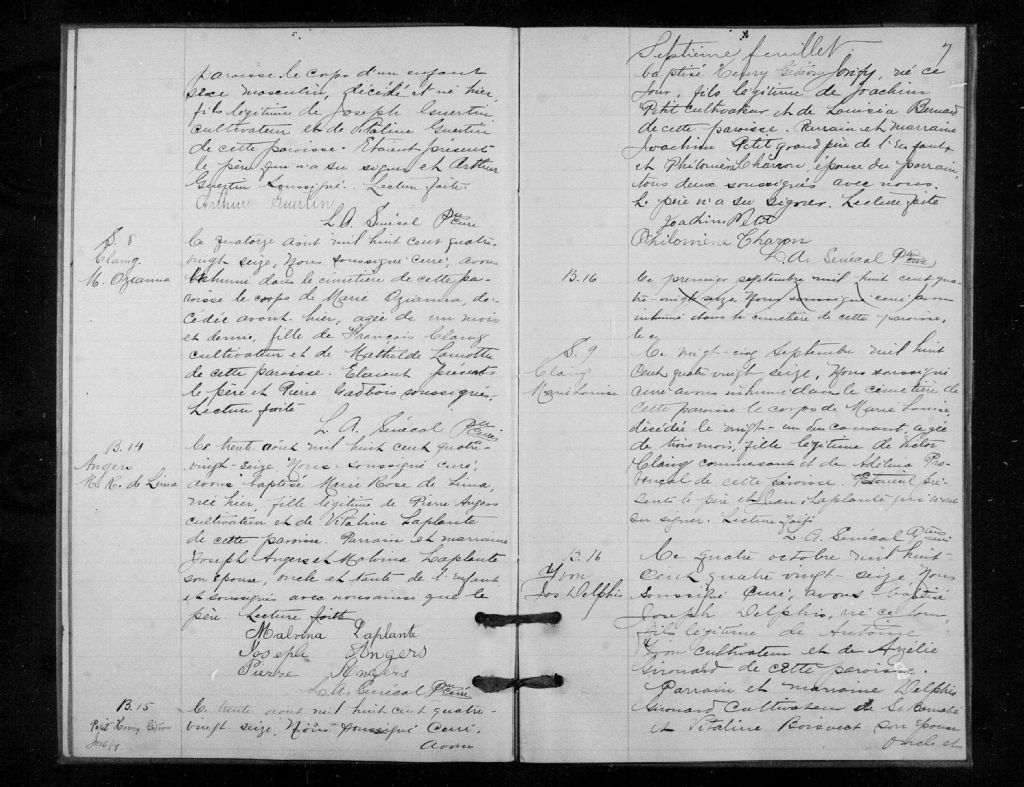 paroisse le corps d'un enfant
sexe masculin, décédé et né hier,
fils légitime de Joseph Guertin
cultivateur et de Vitaline Guertin
de cette paroisse. Etaient présent
le père qui n'a su signer et Arthur
Guertin soussigné. Lecture faite
Arthur Guertin
L. A. Sénécal Ptre curé
S. 8
Claing
M. Ozianna
Ce quatorze aout mil huit cent quatre-
vingt seize, Nous soussigné curé, avons
inhumé dans le cimetière de cette pa-
roisse le corps de Marie Ozianna, dé-
cédée avant hier, agée de un mois
et demi, fille de François Claing
cultivateur et de Mathilde Lamothe
de cette paroisse. Etaient présents
le père et Pierre Gadbois soussignés,
Lecture faite
L. A. Sénécal Ptre curé
B. 14
Angers
M. R. de Lima
Ce trente aout mil huit cent quatre-
vingt-seize, Nous soussigné curé,
avons baptisé Marie Rose de Lima,
née hier, fille légitime de Pierre Angers
cultivateur et de Vitaline Laplante
de cette paroisse. Parrain et marraine
Joseph Angers et Malvina Laplante
son épouse, oncle et tante de l'enfant,
et soussignés avec nous ainsi que le
père. Lecture faite
Malvina Laplante
Joseph Angers
Pierre Angers
L. A. Sénécal Ptre curé
B. 15
Petit Henry Gédéon
Ce trente aout mil huit cent quatre-
vingt seize, Nous soussigné Curé,
avons
Septième feuillet. 7
baptisé Henry Gédéon, né ce
jour, fils légitime de Joachim
Petit cultivateur et de Louisia Benard
de cette paroisse. Parrain et marraine
Joachim Petit grand père de l'enfant
et Philomène Charon, épouse du parrain,
tous deux soussignés avec nous.
Le père n'a su signer. Lecture faite
Joachim Petit
Philomène Charon
L. A. Sénécal Ptre curé
B. 16
Ce premier septembre mil huit cent qua-
tre-vingt seize, Nous soussigné curé avons
inhumé dans le cimetière de cette paroisse,
le c
S. 9
Claing
Marie Louise
Ce vingt-cinq Septembre mil huit
cent quatre vingt seize, Nous soussigné
curé avons inhumé dans le cimetière de
cette paroisse le corps de Marie Louise,
décédée le vingt-un du courant, agée
de trois mois, fille légitime de
Claing commercant et de Adélina Pro-
vencal de cette paroisse. pré-
sents le père et Laplante qui n'ont
su signer. Lecture faite
L. A. Sénécal Ptre curé
B. 16
Yvon
Jos Delphis
Ce quatre octobre mil huit-
cent quatre vingt-seize, Nous
soussigné Curé, avons baptisé
Joseph Delphis, né ce jour,
fils légitime de Antoine
Yvon cultivateur et de Azélie
Girouard de cette paroisse.
Parrain et marraine Delphis
Girouard Cultivateur de
et Vitaline Boisvert son épouse
oncle et